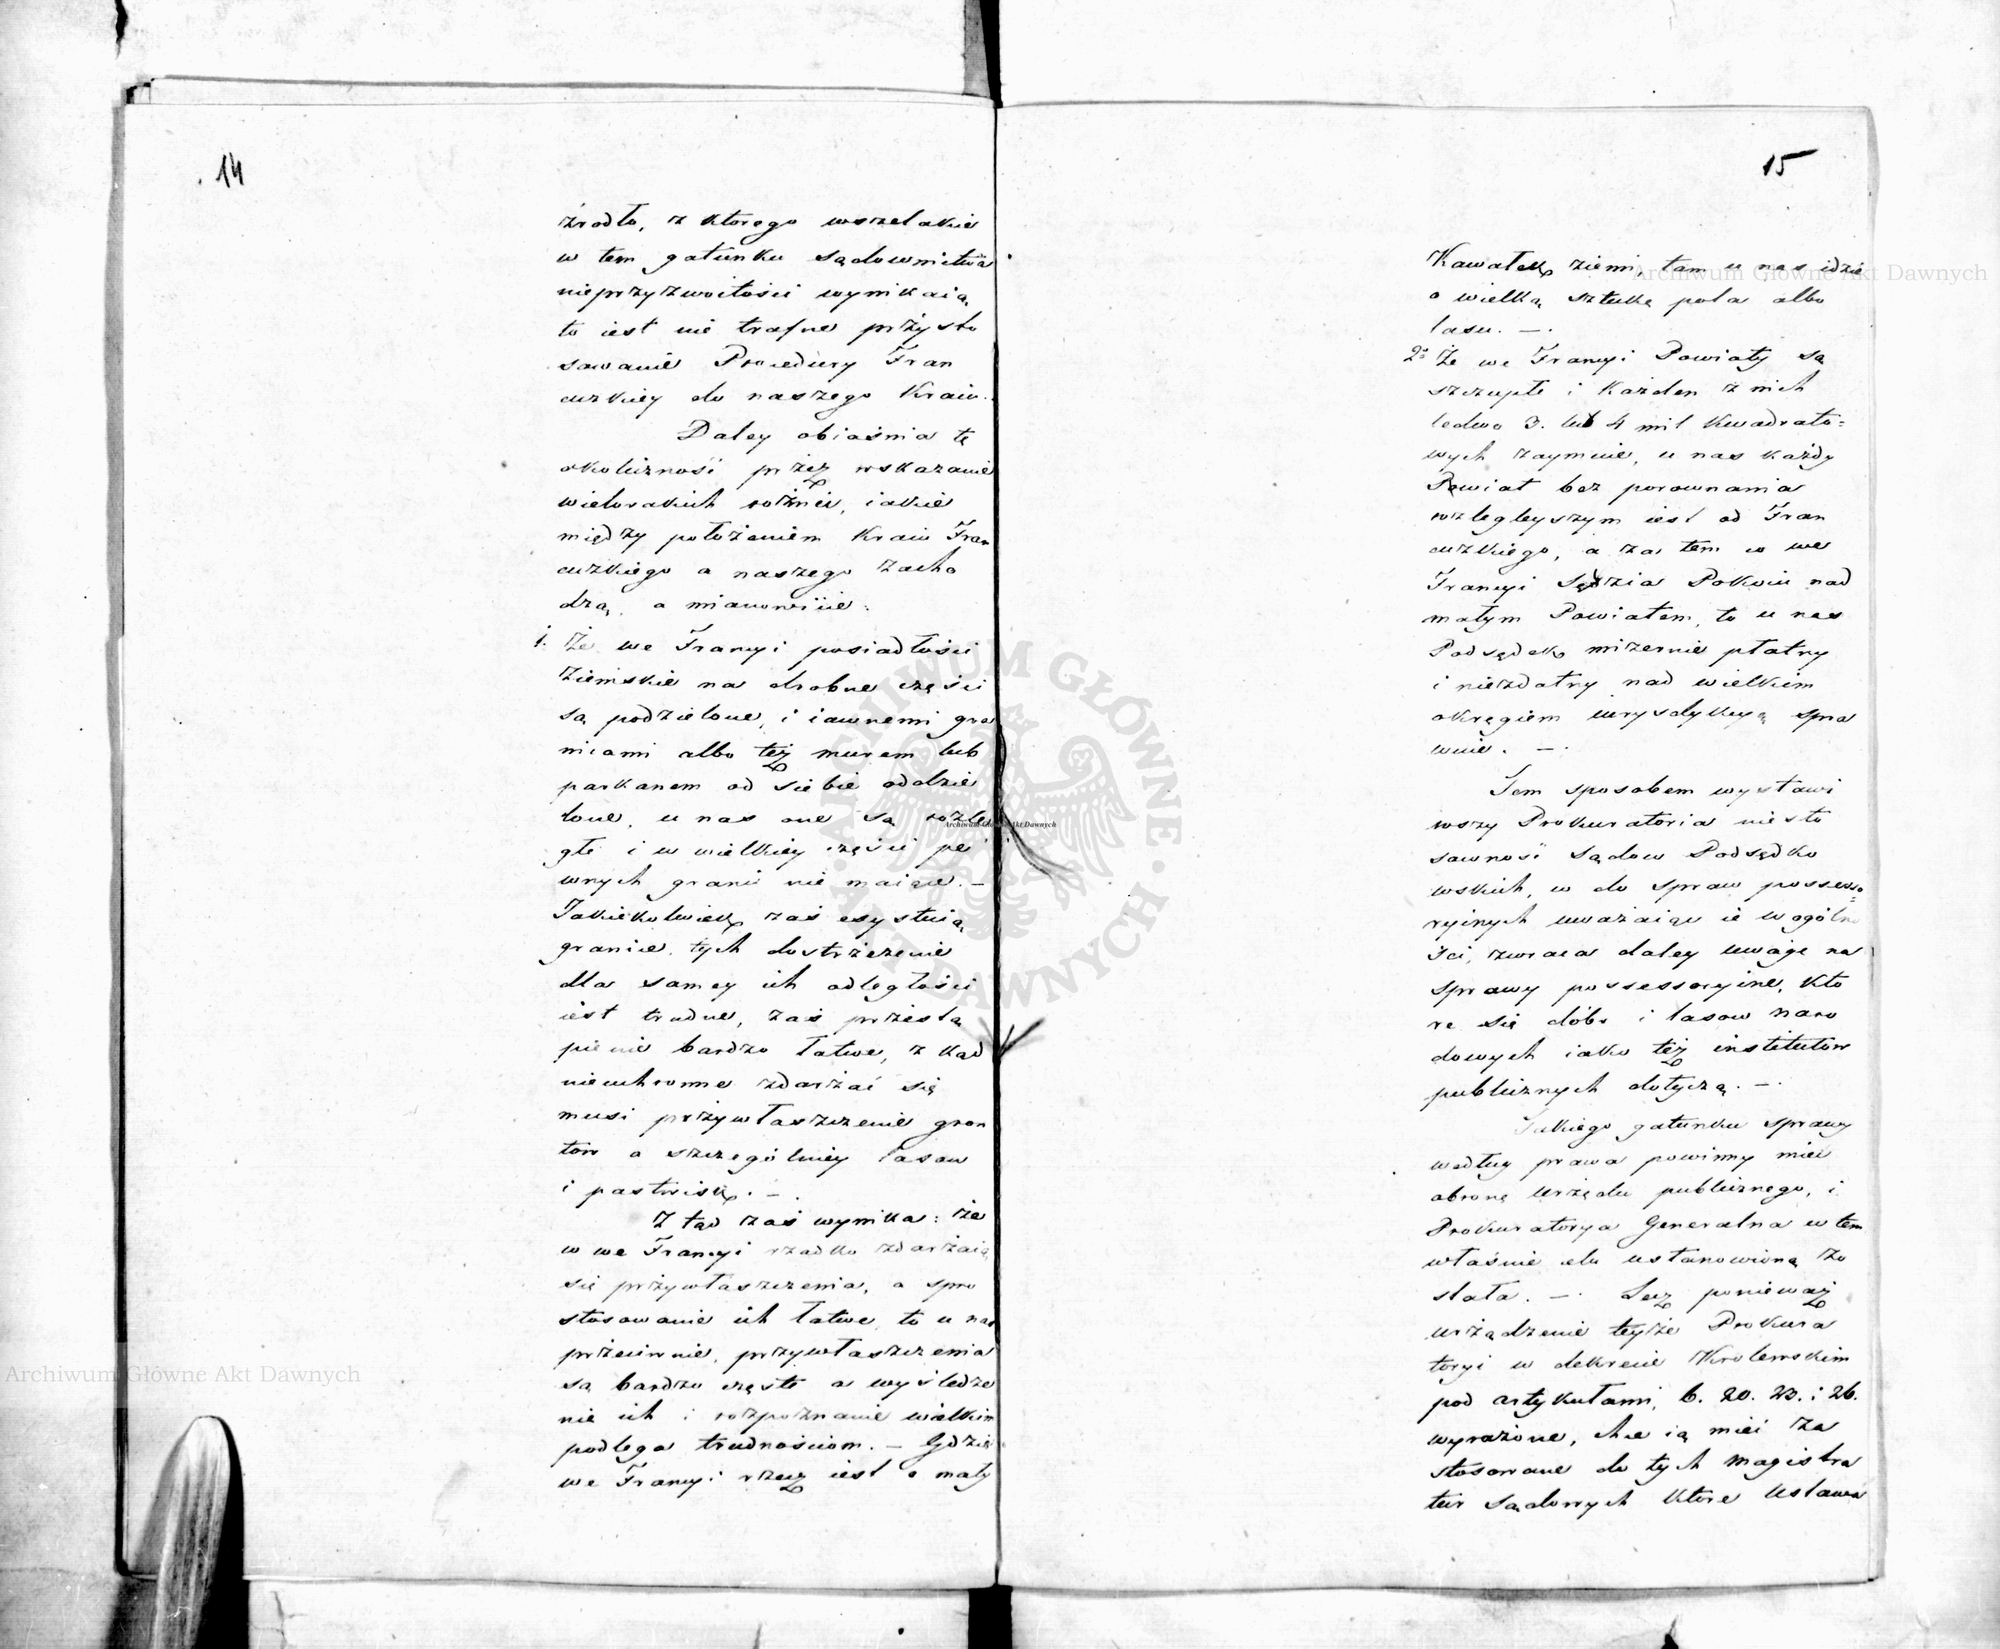 14
źrodło, z ktorego wszelakie
w tem gatunku sądownictwa
nieprzyzwoitości wynikaią,
to iest nie trafne przysto
sowanie Procedury Fran
cuzkiey do naszego Kraiu.
Daley obiaśnia tę
okoliczność przez wskazanie
wielorakich rożnic, iakie
między położeniem Kraiu Fran
cuzkiego a naszego zacho
dzą, a mianowicie:
1. Że we Francyi posiadłości
Ziemskie na drobne części
są podzielone, i iawnemi gra
nicami albo też murem lub
parkanem od siebie oddzie
lone, u nas one są rozle
głe i w wielkiey części pe
wnych granic nie maiące. —
Jakiekolwiek zaś exystuią
granice, tych dostrzeżenie
dla samey ich odległości
iest trudne, zaś przestą
pienie bardzo łatwe, z kąd
nieuchronne zdarzać się
musi przywłaszczenie gron
tow a szczegolniey lasow
i pastwisk. —
Z tąd zaś wynika: że
w we Francyi rzadko zdarzaią
się przywłaszczenia, a spro
stosowanie ich łatwe, to u nas
przeciwnie, przywłaszczenia
są bardzo częste a wyśledze
nie ich i rozpoznanie wielkim
podlega trudnościom. — Gdzie
we Francyi rzecz iest o mały
15
Kawałek ziemi, tam u nas idzie
o wielką sztukę pola albo
lasu. —
2° Że we Francyi Powiaty są
szczupłe i Każden z nich
ledwo 3. lub 4 mil Kwadrato=
wych zaymuie, u nas każdy
Powiat bez porownania
rozległeyszym iest od Fran
cuzkiego, a za tem w we
Francyi Sędzia Pokoiu nad
małym Powiatem, to u nas
Podsędek mizernie płatny
i niezdatny nad wielkim
okręgiem iurysdykcyą spra
wuie. —
Tem sposobem wystawi
wszy Prokuratoria niesto
sowność Sądow Podsędko
wskich, w do spraw possesso=
ryinych uważaiąc ie w ogólno
ści, zwraca daley uwagę na
sprawy possessoryine, kto
re się dóbr i lasow naro
dowych iako też institutow
publicznych dotyczą. —
Takiego gatunku sprawy
według prawa powinny mieć
obronę Urzędu publicznego, i
Prokuratorya Generalna w tem
właśnie celu ustanowioną zo
stała. — Lecz ponieważ
urządzenie teyże Prokura
toryi w dekrecie Krolewskim
pod artykułami, 6. 20. 23. i 26.
wyrażone, chce ią mieć za
stosowane do tych magistra
tur Sądowych ktore Ustawa
Archiwum Główne Akt Dawnych
Archiwum Główne Akt Dawnych
Archiwum Główne Akt Dawnych
ARCHIWUM GŁÓWNE AKT DAWNYCH